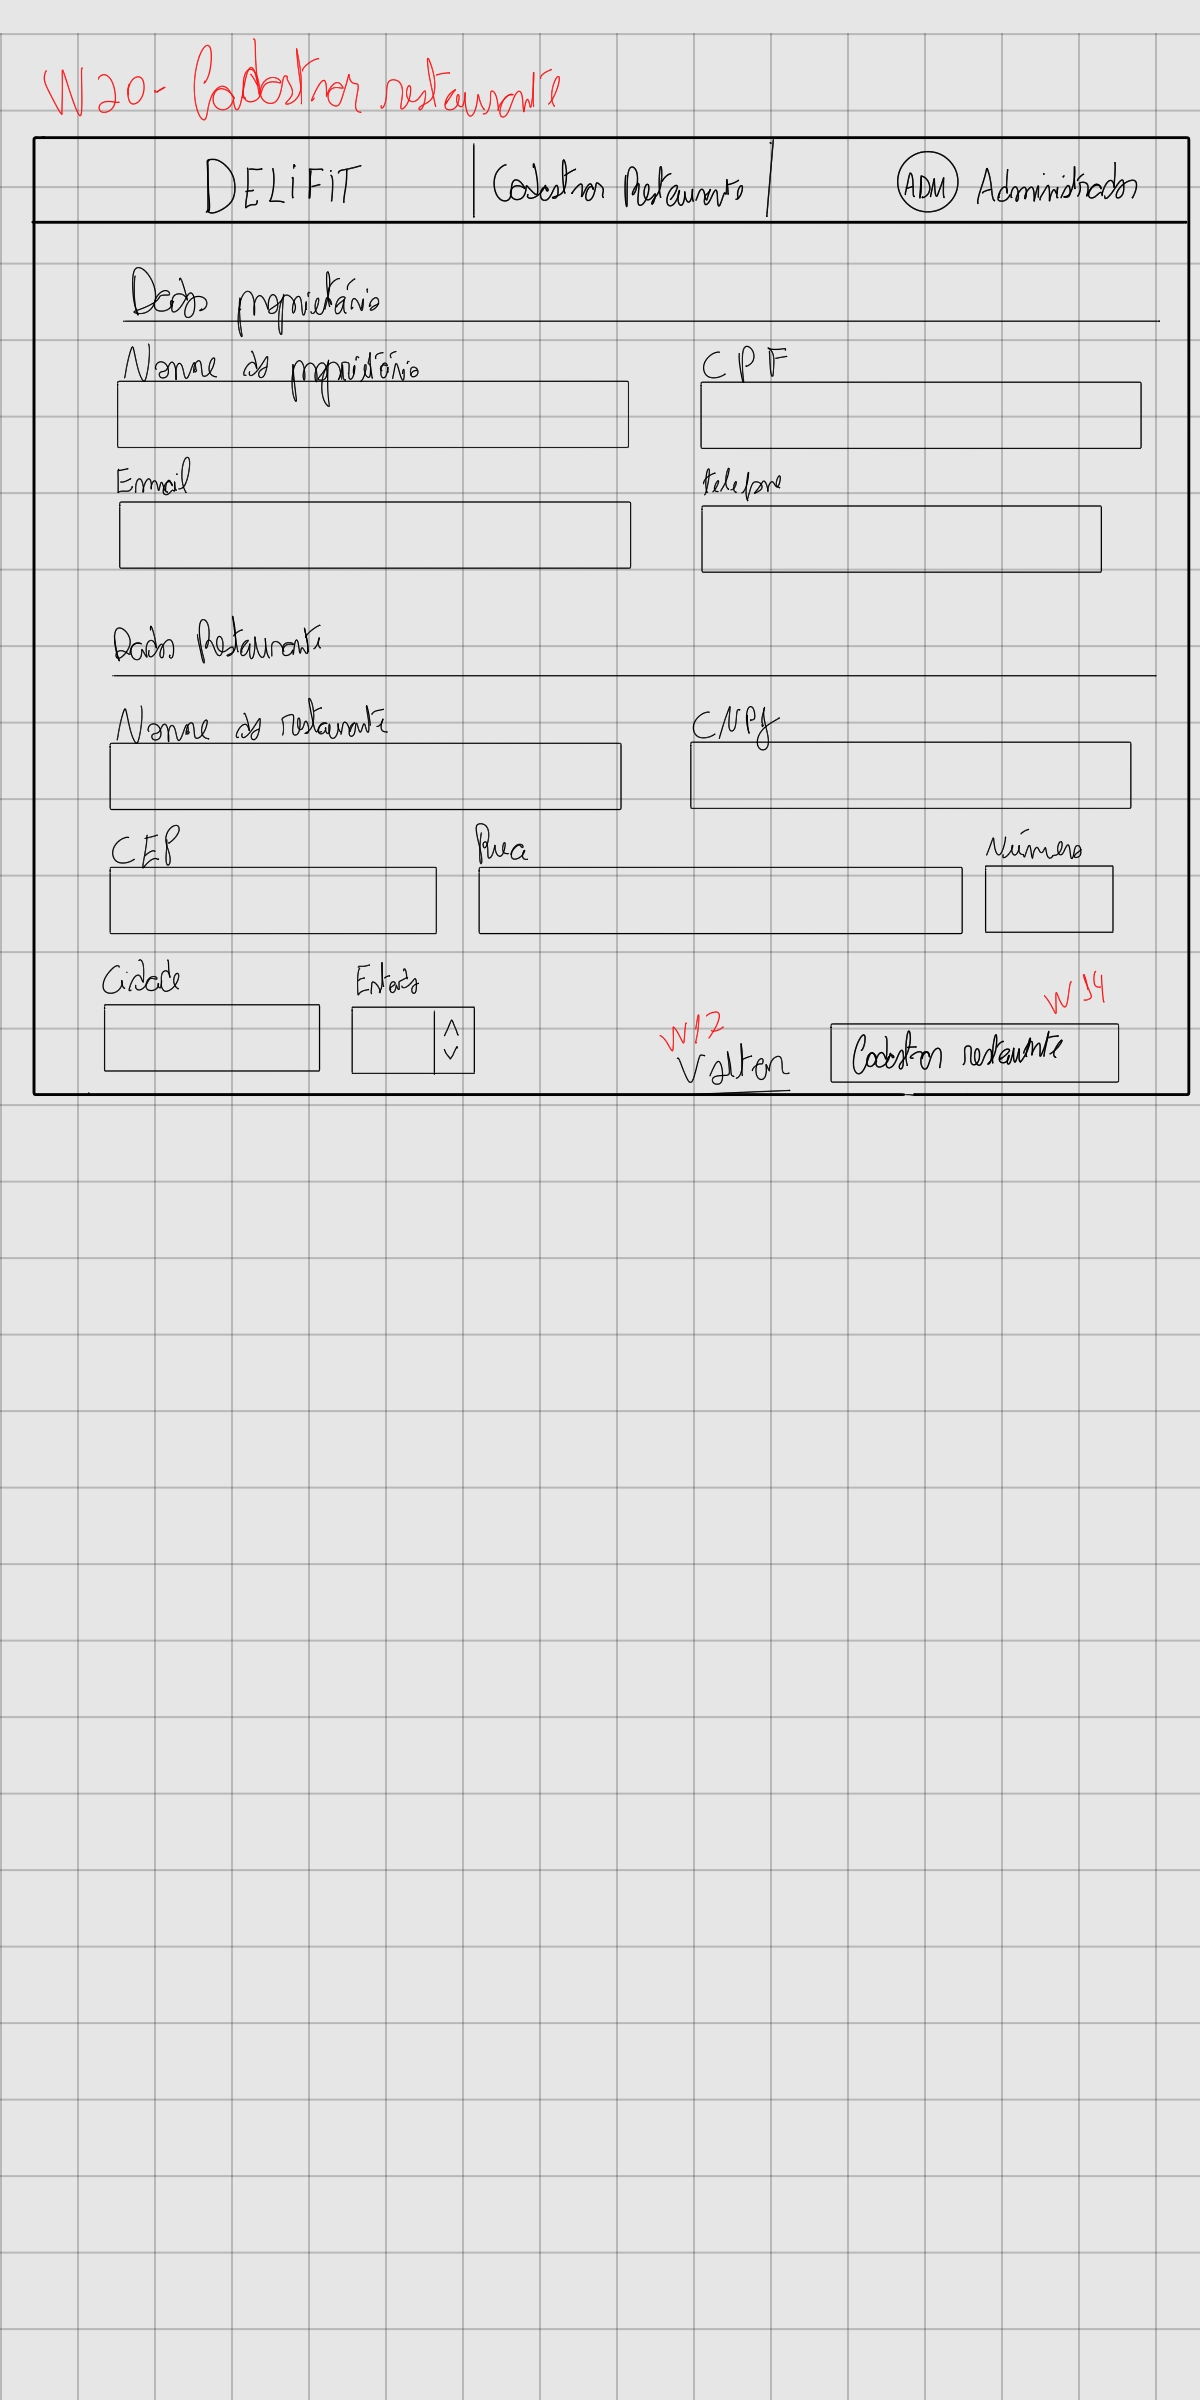 W20- Cadastrar restaurante
DELiFiT | Cadastrar Restaurante | ADM Administrador
Dados proprietário
Nome do proprietário CPF
Email telefone
Dados Restaurante
Nome do restaurante CNPJ
CEP Rua Número
Cidade Estado
W17 W14
Voltar Cadastrar restaurante